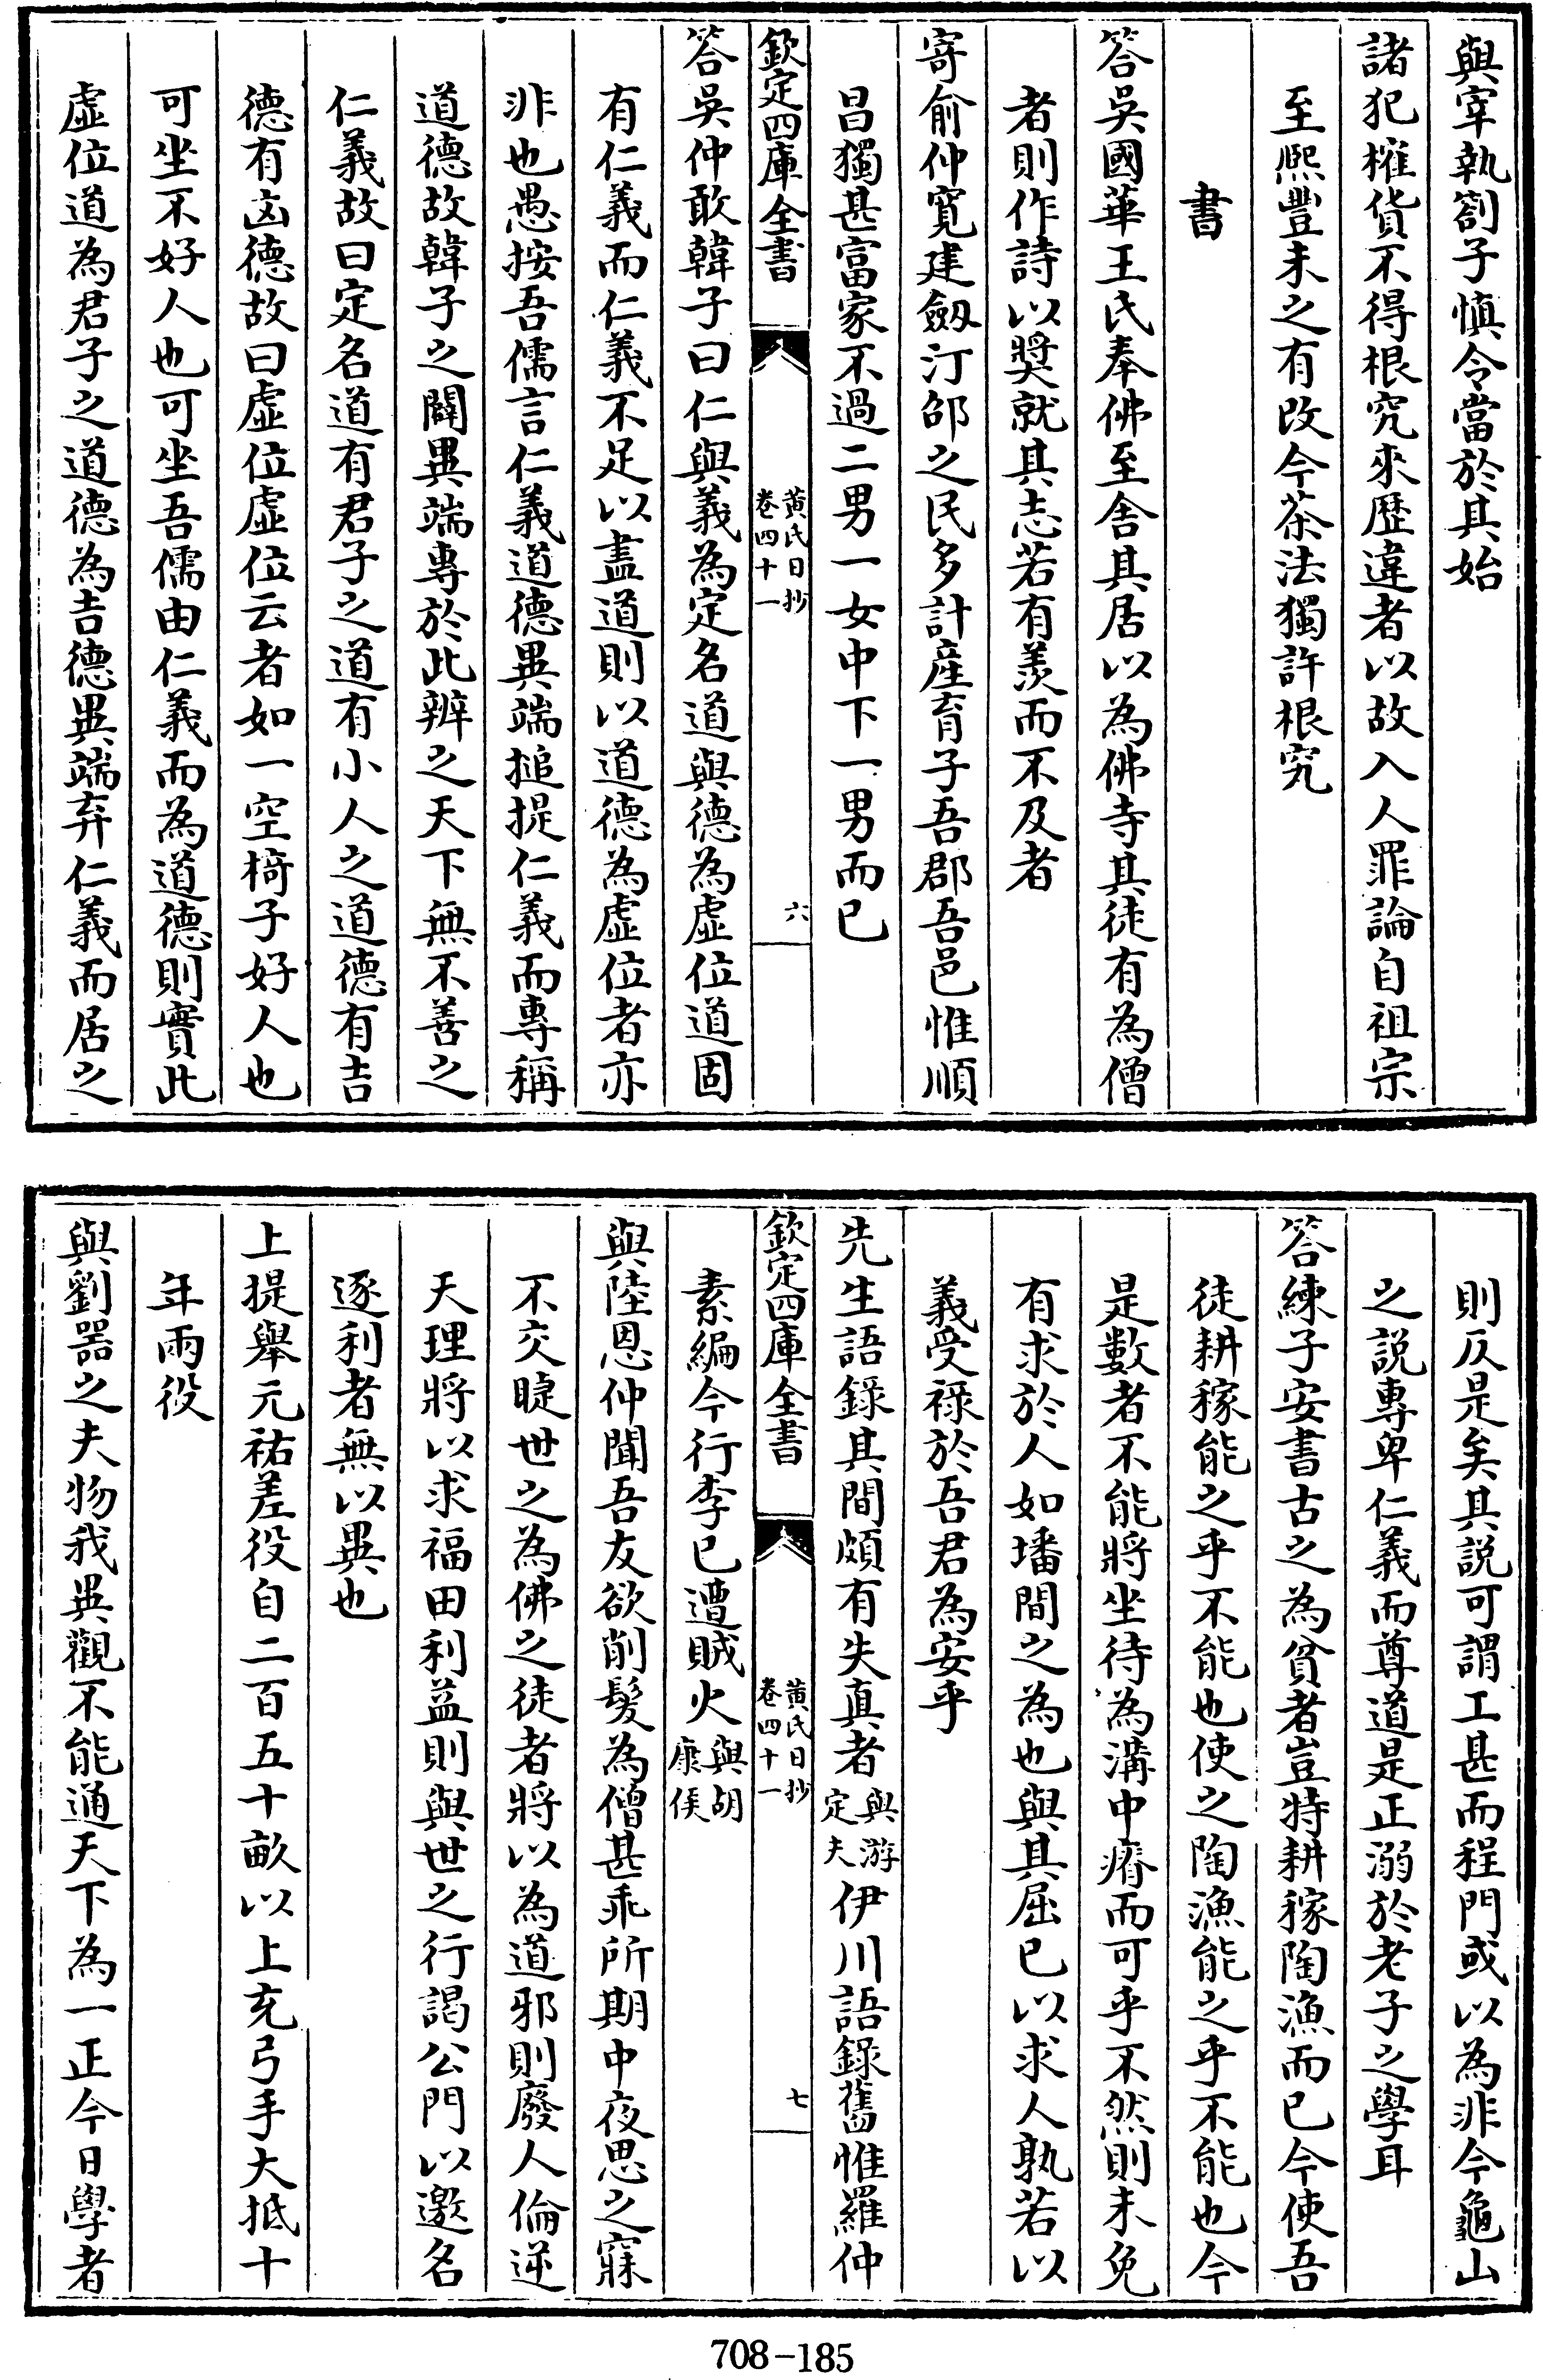 與宰執劄子慎令當於其始
諸犯榷貨不得根究來歷違者以故入人罪論自祖宗
至熙豐未之有改今茶法獨許根究
書
答吳國華王氏奉佛至舍其居以為佛寺其徒有為僧
者則作詩以奬就其志若有羨而不及者
寄俞仲寛建劔汀邵之民多計産育子吾郡吾邑惟順
昌獨甚富家不過二男一女中下一男而已
欽定四庫全書
黄氏日抄
卷四十一
六
答吳仲敢韓子曰仁與義為定名道與德為虛位道固
有仁義而仁義不足以盡道則以道德為虛位者亦
非也愚按吾儒言仁義道德異端搥提仁義而專稱
道德故韓子之闢異端專於此辨之天下無不善之
仁義故曰定名道有君子之道有小人之道德有吉
德有凶德故曰虛位虛位云者如一空椅子好人也
可坐不好人也可坐吾儒由仁義而為道德則實此
虛位道為君子之道德為吉德異端弃仁義而居之
則仄是矣其説可謂工甚而程門或以為非今龜山
之説專卑仁義而尊道是正溺於老子之學耳
答練子安書古之為貧者豈特耕稼陶漁而已今使吾
徒耕稼能之乎不能也使之陶漁能之乎不能也今
是數者不能將坐待為溝中瘠而可乎不然則未免
有求於人如墦間之為也與其屈已以求人孰若以
義受禄於吾君為安乎
先生語錄其間頗有失真者與游定夫伊川語錄舊惟羅仲
欽定四庫全書
黄氏日抄
卷四十一
七
素編今行李已遭賊火與胡康侯
與陸恩仲聞吾友欲削髮為僧甚乖所期中夜思之寐
不交睫世之為佛之徒者將以為道邪則廢人倫逆
天理將以求福田利益則與世之行謁公門以邀名
逐利者無以異也
上提舉元祐差役自二百五十畝以上充弓手大抵十
年兩役
與劉器之夫物我異觀不能通天下為一正今日學者
708-185